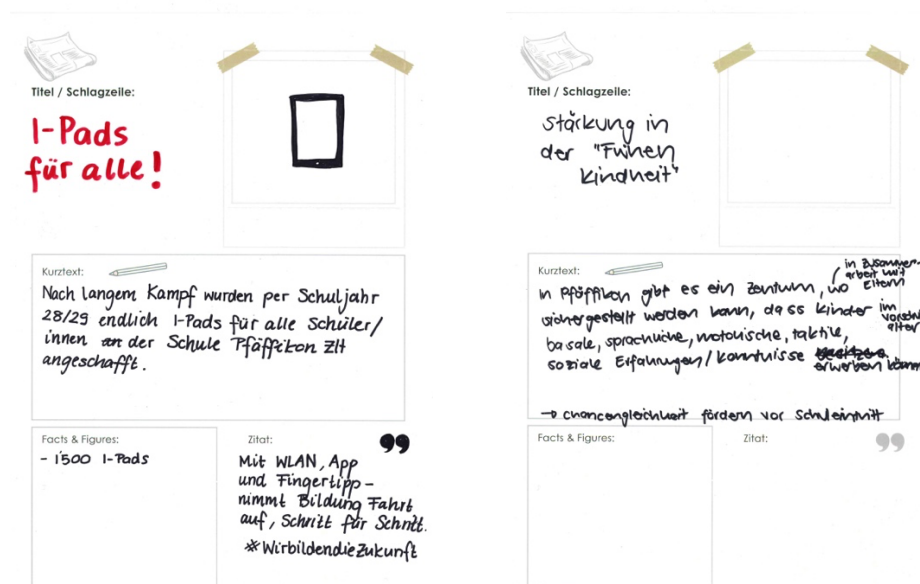 Titel / Schlagzeile:
I-Pads
für alle!
Kurztext:
Nach langem Kampf wurden per Schuljahr
28/29 endlich I-Pads für alle Schüler/
innen an der Schule Pfäffikon ZH
angeschafft.
Facts & Figures:
- 1'500 I-Pads
Zitat:
Mit WLAN, App
und Fingertipp -
nimmt Bildung Fahrt
auf, Schritt für Schritt.
#WirbildendieZukunft
Titel / Schlagzeile:
Stärkung in
der "Frühen
Kindheit"
Kurztext:
in Zusammen-
arbeit mit
Eltern
In Pfäffikon gibt es ein Zentrum, wo
sichergestellt werden kann, dass Kinder im
basale, sprachliche, motorische, taktile,
soziale Erfahrungen/Kenntnisse
erwerben
→ Chancengleichheit fördern vor Schuleintritt
Facts & Figures:
Zitat: